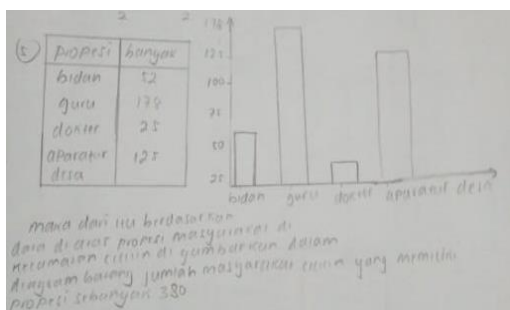 2 2
5
propesi banyak
bidan 52
guru 178
dokter 25
aparatur desa 125
178
125
100
75
50
25
bidan guru dokter aparatur desa
maka dari itu berdasarkan
data di atas propesi masyarakat di
kecamatan cililin di gambarkan dalam
diagram batang jumlah masyarakat cililin yang memiliki
propesi sebanyak 380